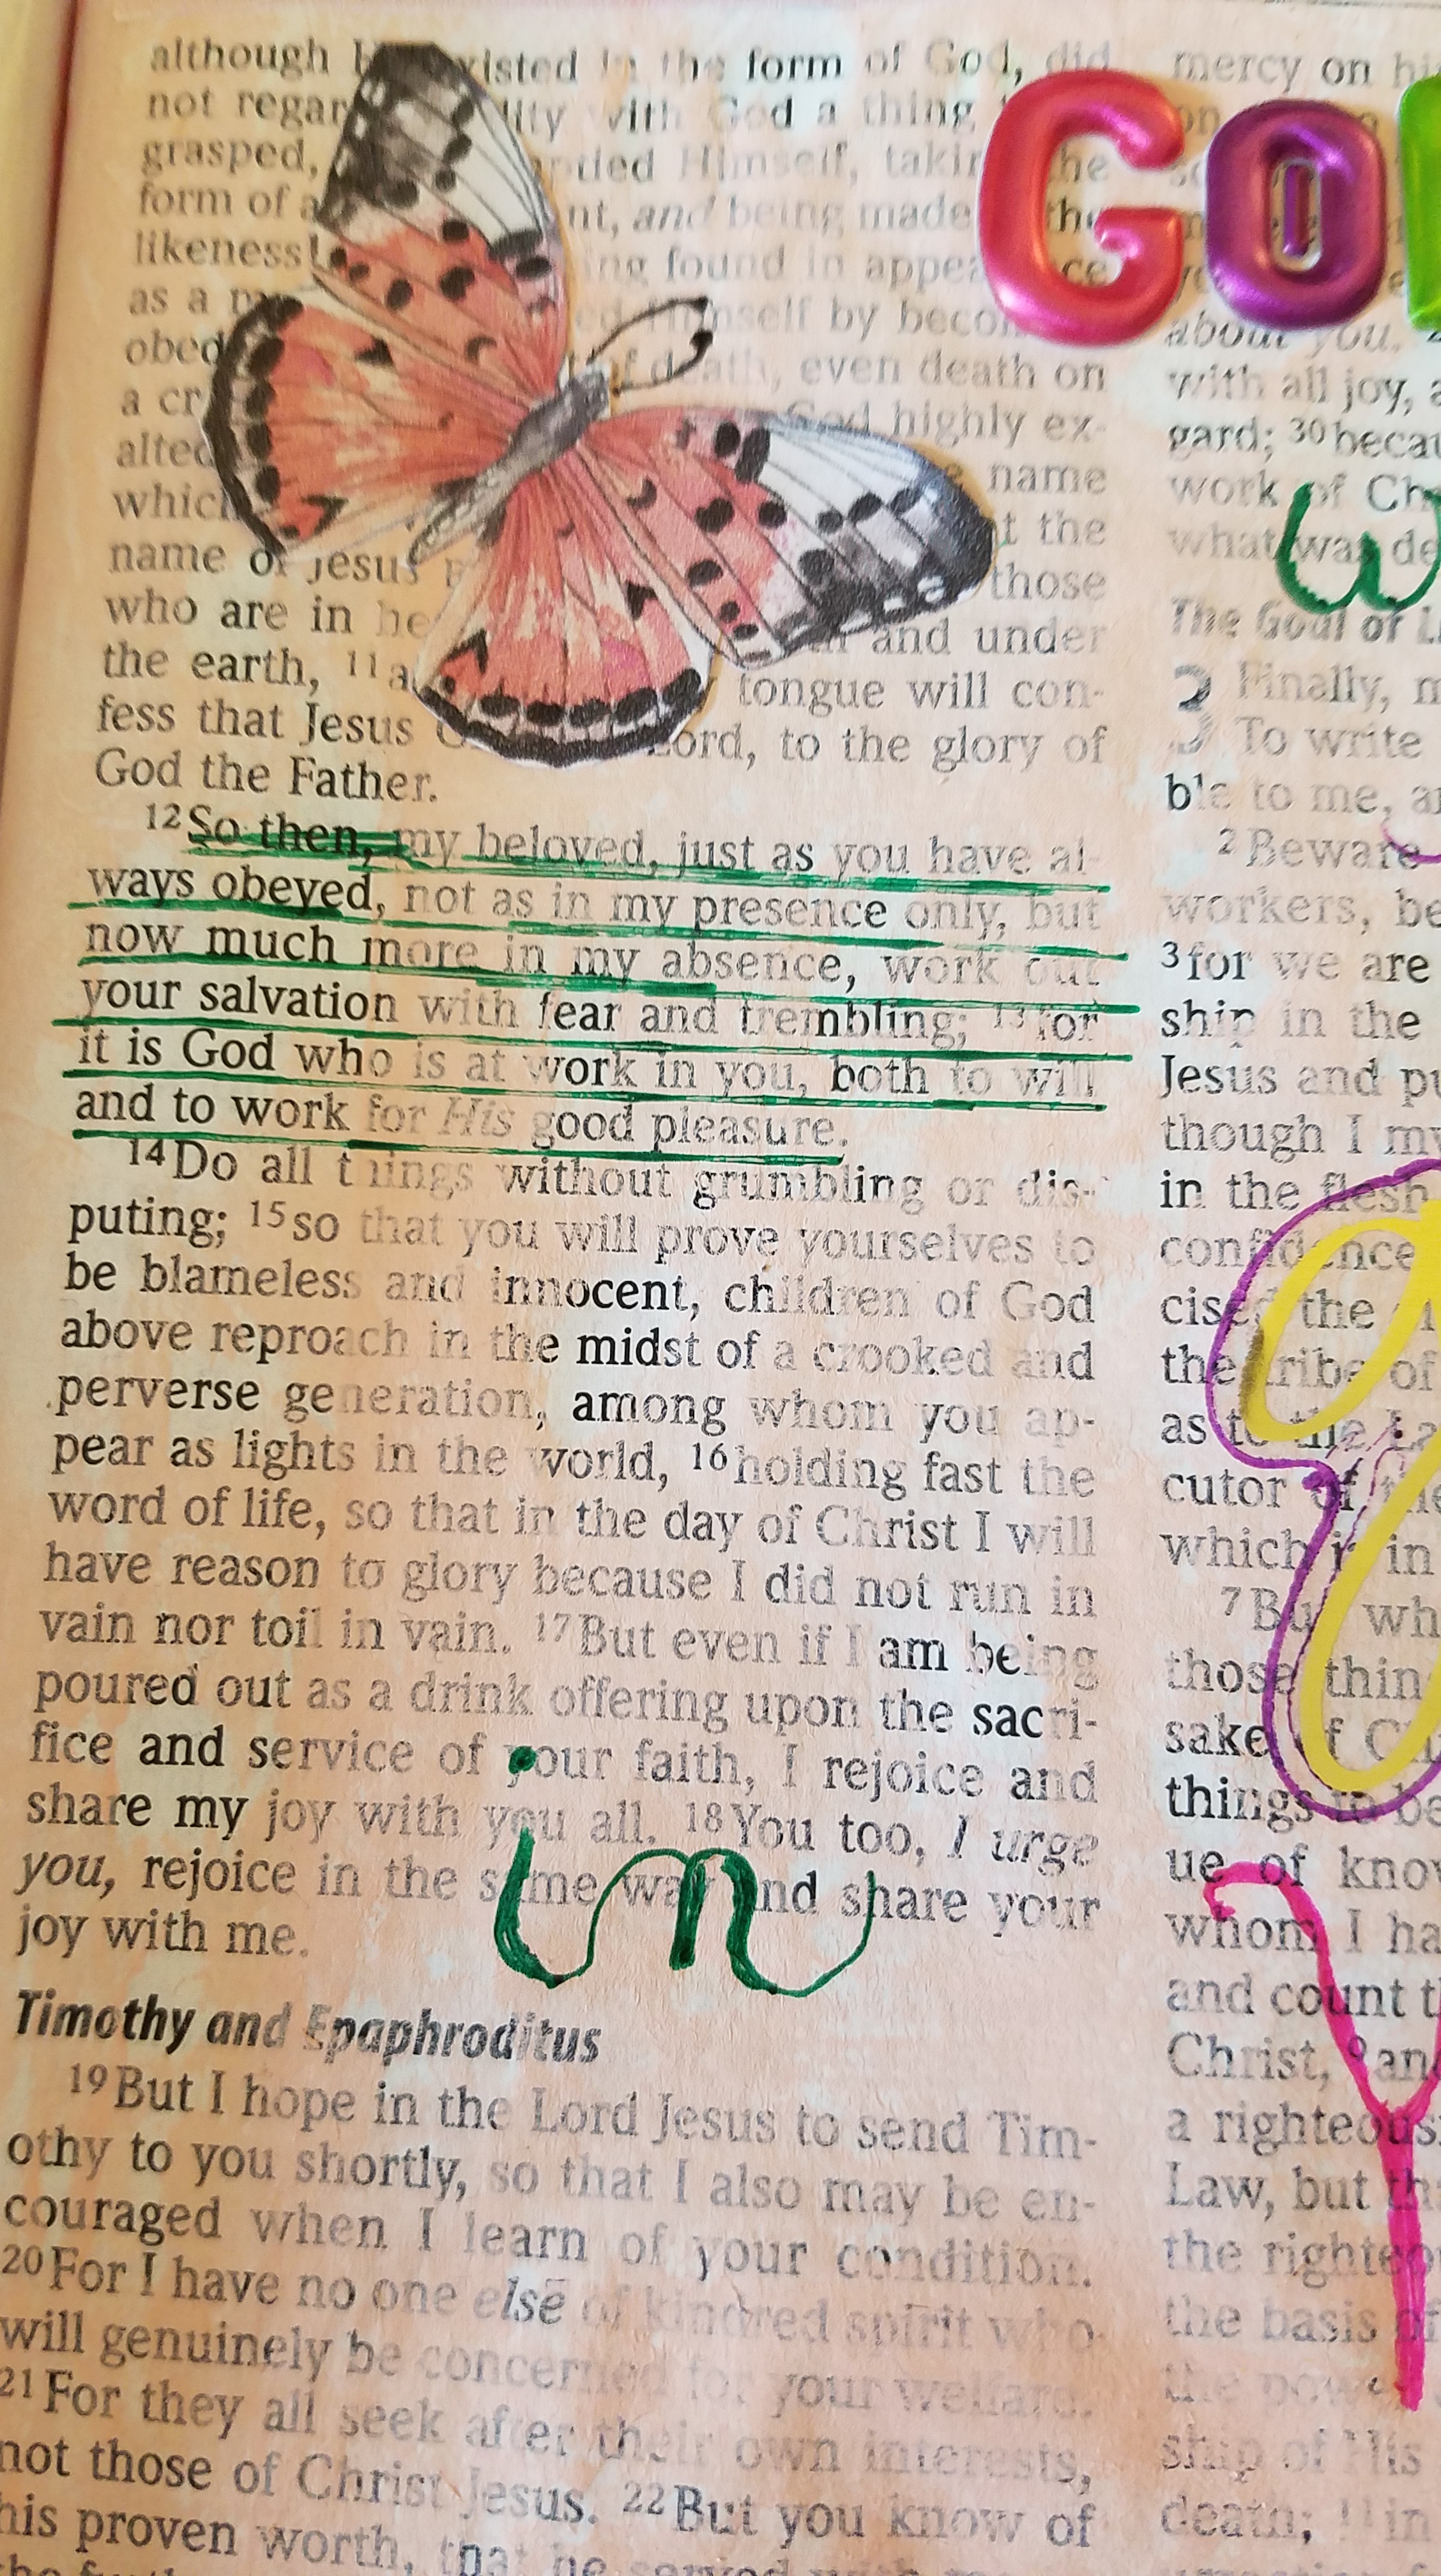 although existed in the form of God, did
not regar lity with God a thing
grasped, ptied Himself, takin the
form of a nt, and being made the
likeness ing found in appea ce
as a m ed Himself by becom
obed of death, even death on
a cr God highly ex-
altec name
which t the
name of Jesus those
who are in he and under
the earth, 11a tongue will con-
fess that Jesus Lord, to the glory of
God the Father.
12So then, my beloved, just as you have al-
ways obeyed, not as in my presence only, but
now much more in my absence, work out
your salvation with fear and trembling; 13for
it is God who is at work in you, both to will
and to work for His good pleasure.
14Do all things without grumbling or dis-
puting; 15so that you will prove yourselves to
be blameless and innocent, children of God
above reproach in the midst of a crooked and
perverse generation, among whom you ap-
pear as lights in the world, 16holding fast the
word of life, so that in the day of Christ I will
have reason to glory because I did not run in
vain nor toil in vain. 17But even if I am being
poured out as a drink offering upon the sacri-
fice and service of your faith, I rejoice and
share my joy with you all. 18You too, I urge
you, rejoice in the same way and share your
joy with me.
in
Timothy and Epaphroditus
19But I hope in the Lord Jesus to send Tim-
othy to you shortly, so that I also may be en-
couraged when I learn of your condition.
20For I have no one else of kindred spirit who
will genuinely be concerned for your welfare.
21For they all seek after their own interests,
not those of Christ Jesus. 22But you know of
his proven worth, that he served with m
mercy on hi
on
Go
about you.
with all joy, a
gard; 30becau
work of Ch
what was de
w
The Goal of Li
3 Finally, m
To write
ble to me, a
2Beware
workers, be
3for we are
ship in the
Jesus and pu
though I my
in the flesh
confidence
cised the
the tribe of
as to the La
cutor of the
which is in
7But wh
those thin
sake of Ch
things to be
ue of know
whom I ha
and count t
Christ, 9an
a righteous
Law, but th
the righteo
the basis of
the powe
ship of His
death; 11in